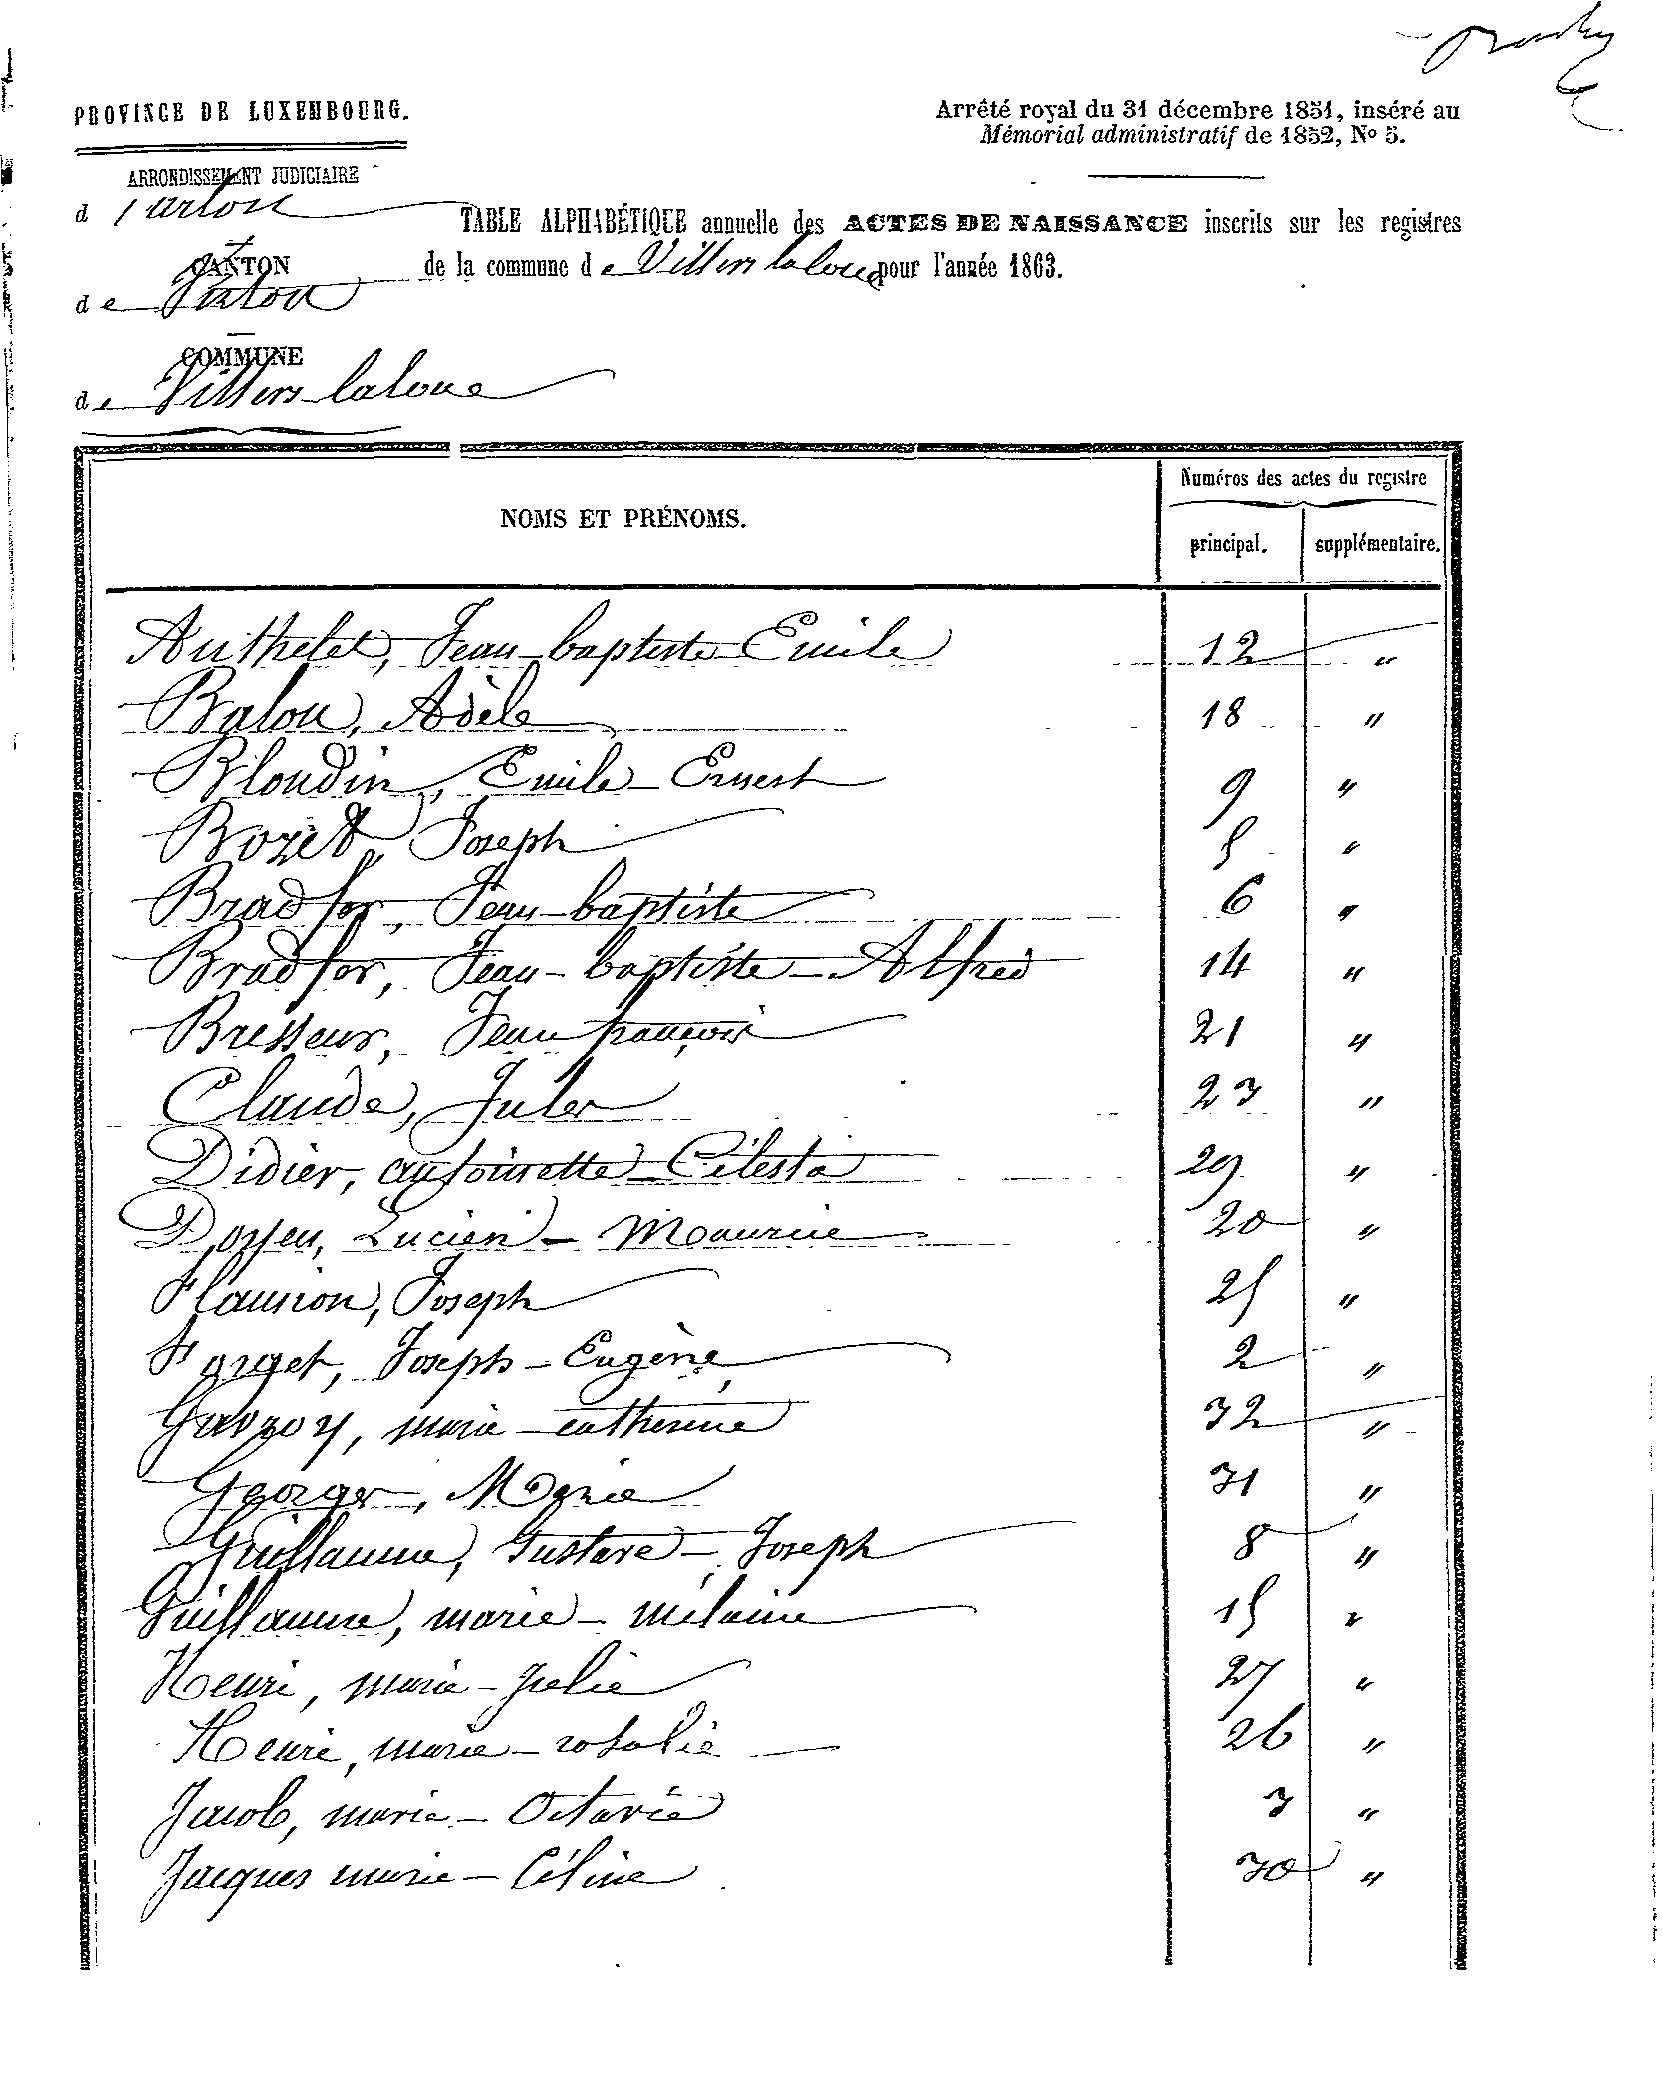 PROVINCE DE LUXEMBOURG.
Arrêté royal du 31 décembre 1851, inséré au
Mémorial administratif de 1852, No 5.
ARRONDISSEMENT JUDICIAIRE
d'arlon
TABLE ALPHABÉTIQUE annuelle des ACTES DE NAISSANCE inscrits sur les registres
de la commune de Villers laloue pour l'année 1863.
CANTON
de Virton
COMMUNE
de Villers-laloue
NOMS ET PRÉNOMS.
Numéros des actes du registre
principal. supplémentaire.
Authelet, Jean-baptiste Emile 12 "
Balon, Adèle 18 "
Blondin, Emile-Ernest 9 "
Bozet, Joseph 5 "
Bradfor, Jean-baptiste 6 "
Bradfor, Jean-baptiste-Alfred 14 "
Bresseur, Jean françois 21 "
Claude, Jules 23 "
Didier, antoinette-Célesta 29 "
Lucien-Maurice 20 "
Flamion, Joseph 25 "
Forget, Joseph-Eugène, 2 "
Gavroy, marie-catherine 32 "
Georges, Marie 31 "
Guillaume, Gustave-Joseph 8 "
Guillaume, marie-mélanie 15 "
Henri, marie-Julie 27 "
Henri, marie-rosalie 26 "
Jacob, marie-Octavie 3 "
Jacques marie-Céline 30 "